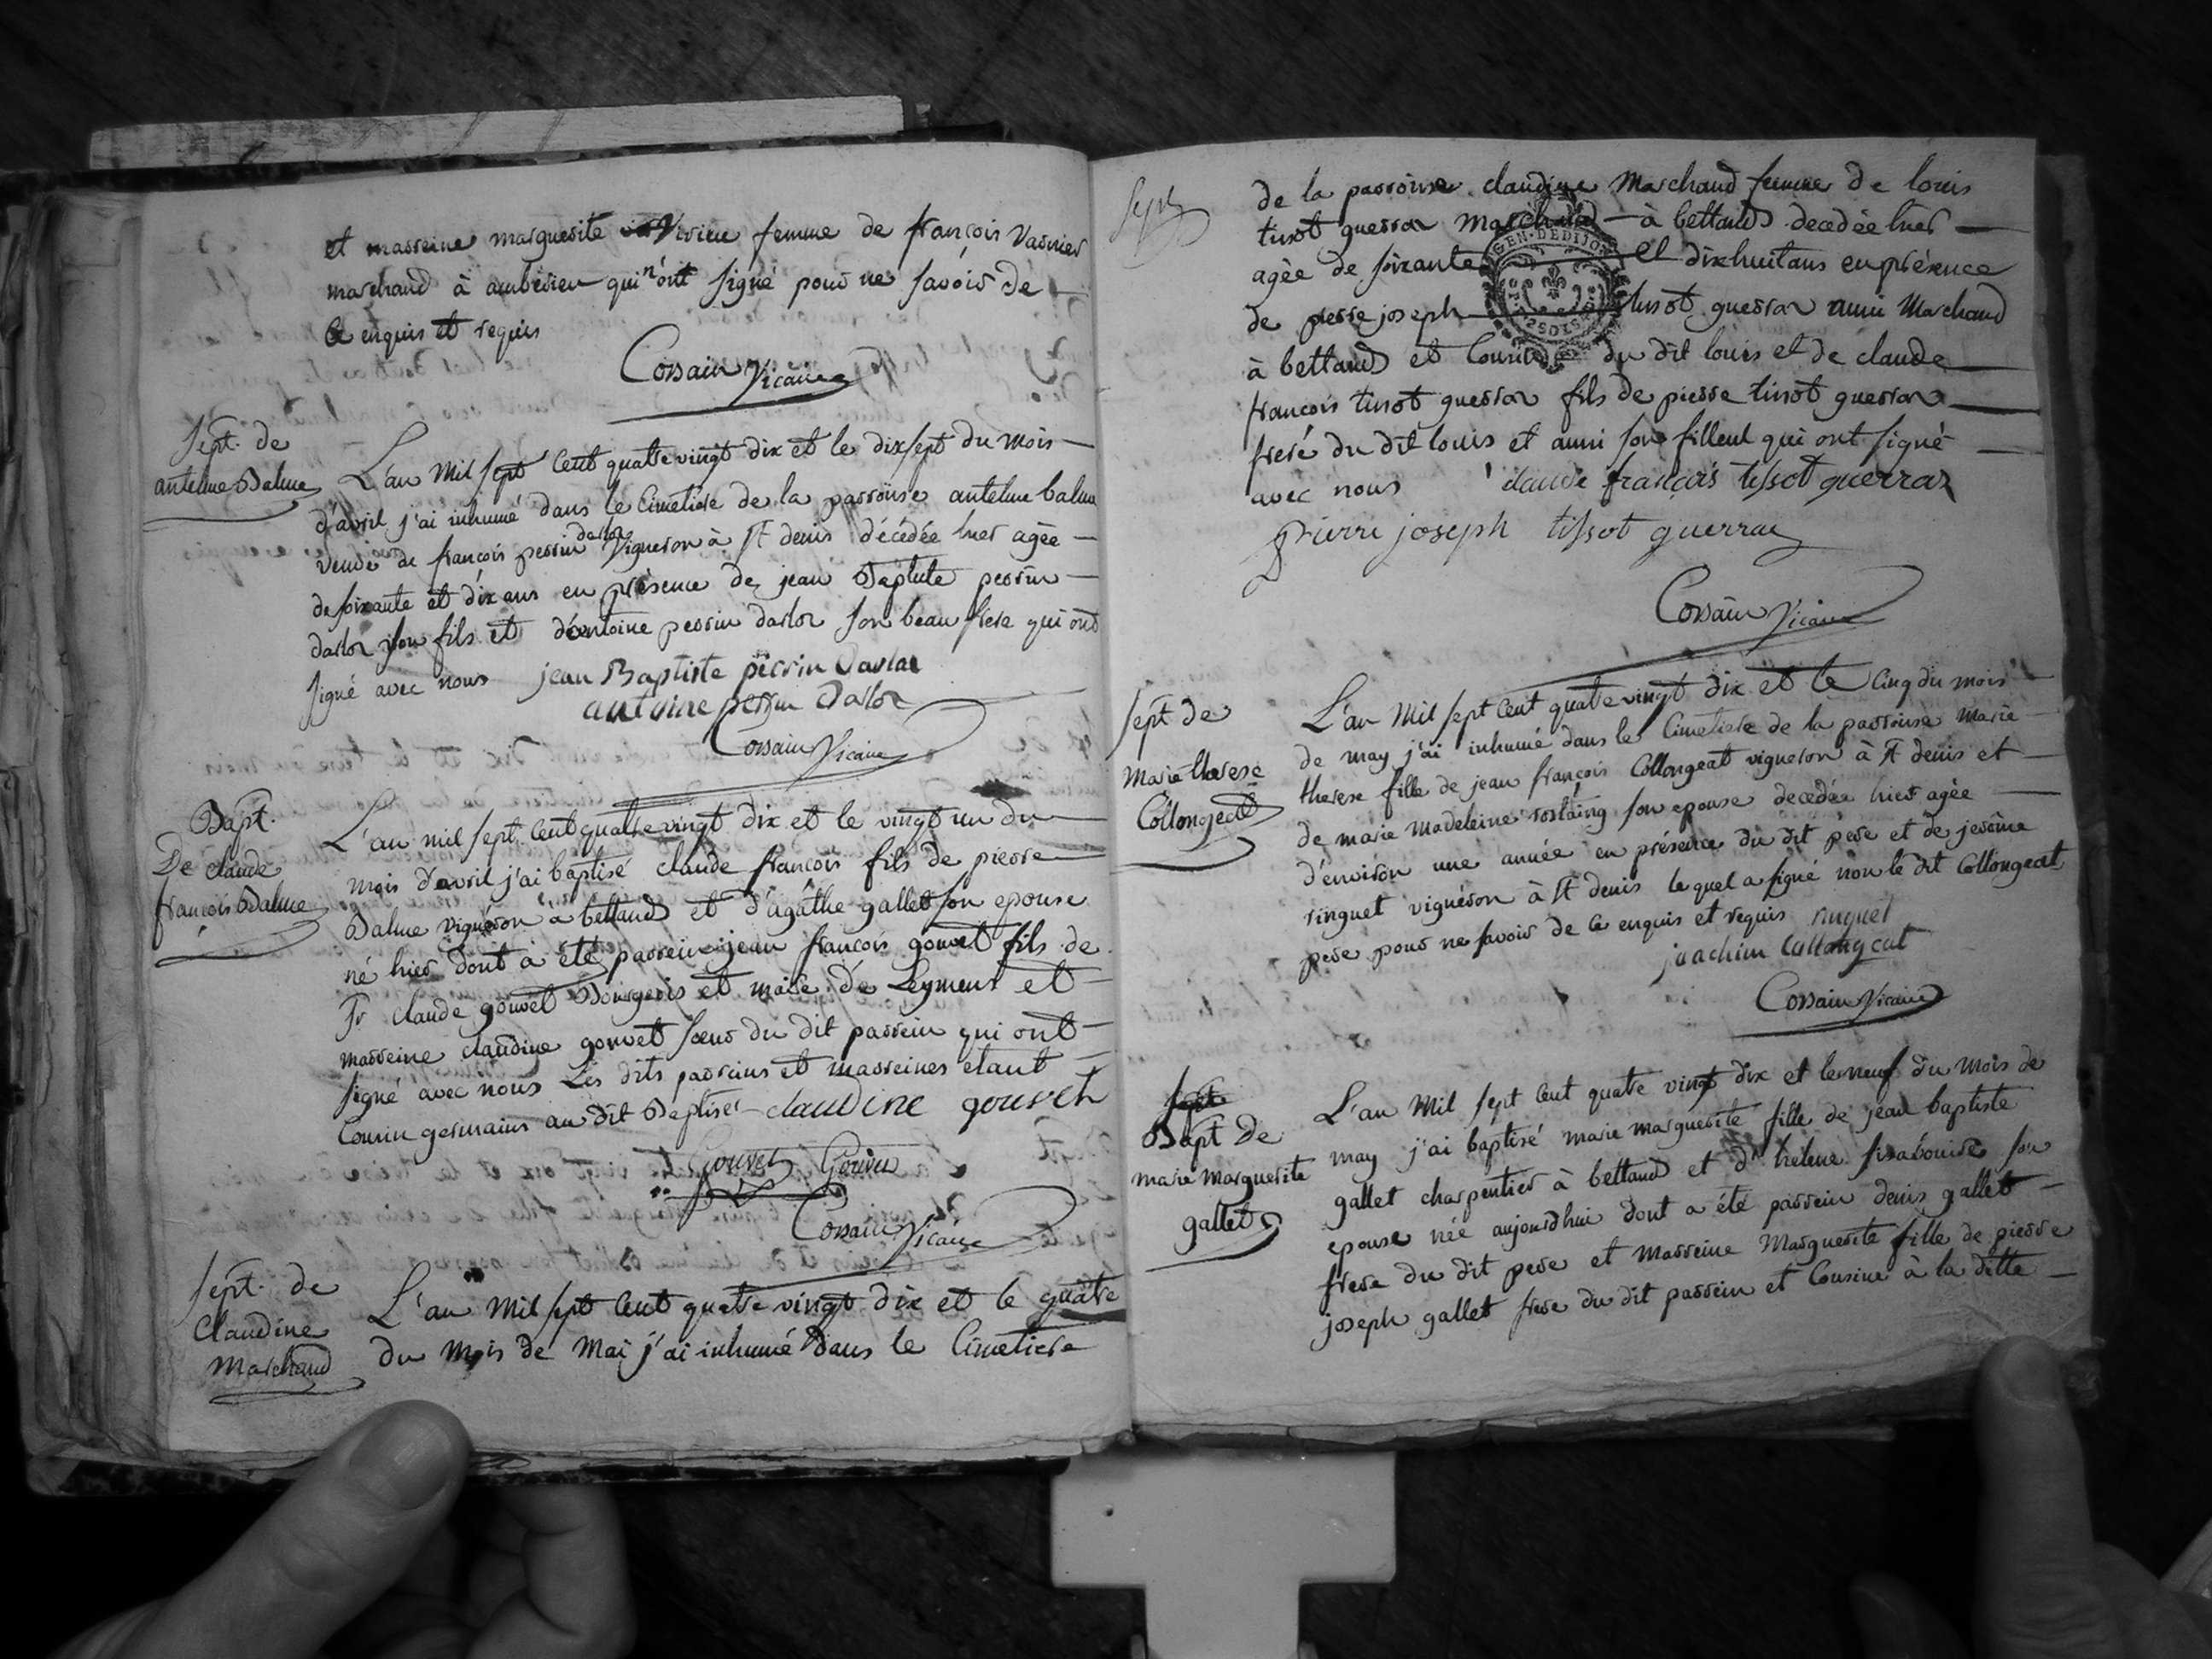 et marreine marguerite Vivier femme de françois Varnier
marchand à ambérieu qui n'ont signé pour ne savoir de
ce enquis et requis
Corsain Vicaire
sept. de
anteline Balme
L'an mil sept cent quatre vingt dix et le dix sept du mois
d'avril j'ai inhumé dans le cimetiere de la parroisse anteline balme
veuve de françois perrin darlor vigneron à St denis décédée hier agée
de soixante et dix ans en présence de jean Baptiste perrin
darlor son fils et d'antoine perrin darlor son beau frere qui ont
signé avec nous jean Baptiste perrin Darlor
antoine perrin Darlor
Corsain Vicaire
Bapt.
De claude
françois Balme
L'an mil sept cent quatre vingt dix et le vingt un du
mois d'avril j'ai baptisé claude françois fils de pierre
Balme vigneron à bettand et d'agathe gallet son epouse
né hier dont à été parrein jean françois gouvet fils de
Sr claude gouvet Bourgeois et maire de Leyment et
marreine claudine gouvet sœur du dit parrein qui ont
signé avec nous Les dits parreins et marreines etant
cousin germains au dit Baptisé claudine gouvet
Gouvet
Corsain Vicaire
sept. de
Claudine
Marchand
L'an mil sept cent quatre vingt dix et le quatre
du mois de Mai j'ai inhumé dans le cimetiere
de la parroisse claudine Marchand femme de louis
tissot guerraz marchand à bettand decedée hier
agée de soixante et dixhuit ans en présence
de pierre joseph tissot guerraz aussi Marchand
à bettand et cousin du dit louis et de claude
françois tissot guerraz fils de pierre tissot guerraz
frere du dit louis et aussi son filleul qui ont signé
avec nous claude françois tissot guerraz
pierre joseph tissot guerraz
Corsain Vicaire
sept de
Marie therese
Collongeat
L'an Mil sept cent quatre vingt dix et le cinq du mois
de may j'ai inhumé dans le cimetiere de la parroisse marie
therese fille de jean françois Collongeat vigneron à St denis et
de marie madeleine rostaing son epouse decedée hier agée
d'environ une année en présence du dit pere et de jerôme
ringuet vigneron à St denis lequel a signé non le dit Collongeat
pere pour ne savoir de ce enquis et requis ringuet
joachim Collongeat
Corsain Vicaire
Bapt de
marie marguerite
gallet
L'an Mil sept cent quatre vingt dix et le neuf du mois de
may j'ai baptisé marie marguerite fille de jean baptiste
gallet charpentier à bettand et d'helene son
epouse née aujourdhui dont a été parrein denis gallet
frere du dit pere et marreine Marguerite fille de pierre
joseph gallet frere du dit parrein et cousine à la ditte